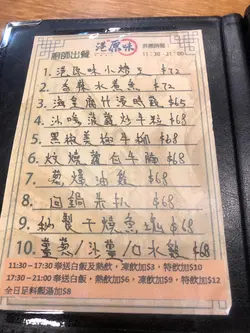 廚師出餐 港原味 供應時間：
11:30 - 21:00
1. 港原味小炒王 $72
2. 香辣水煮魚 $72
3. 海皇腐竹浸時蔬 $65
4. 沙嗲菠蘿炒牛粒 $68
5. 黑椒美極牛柳 $68
6. 炆燉蘿白牛腩 $68
7. 蔥爆油雞 $68
8. 回鍋魚扒 $68
9. 秘製干燒魚塊 $68
10. 薑蔥/沙薑/口水雞 $68
11:30 - 17:30 奉送白飯及熱飲，凍飲加$3，特飲加$10
17:30 - 21:00 奉送白飯，熱飲加$6，凍飲加$9，特飲加$12
全日足料靚湯加$8